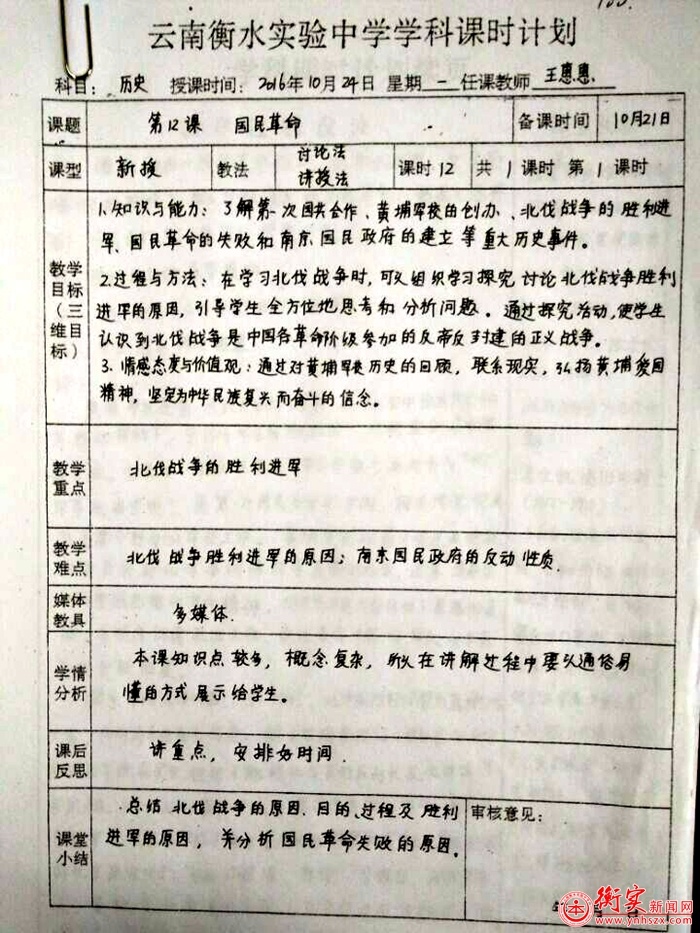 云南衡水实验中学学科课时计划
科目：历史 授课时间：2016年10月24日 星期一 任课教师 王惠惠
课题 第12课 国民革命 备课时间 10月21日
课型 新授 教法 讨论法 讲授法 课时12 共1课时 第1课时
教学目标（三维目标）
1.知识与能力：了解第一次国共合作、黄埔军校的创办、北伐战争的胜利进
军、国民革命的失败和南京国民政府的建立等重大历史事件。
2.过程与方法：在学习北伐战争时，可以组织学习探究讨论北伐战争胜利
进军的原因，引导学生全方位地思考和分析问题。通过探究活动，使学生
认识到北伐战争是中国各革命阶级参加的反帝反封建的正义战争。
3.情感态度与价值观：通过对黄埔军校历史的回顾，联系现实，弘扬黄埔爱国
精神，坚定为中华民族复兴而奋斗的信念。
教学重点 北伐战争的胜利进军
教学难点 北伐战争胜利进军的原因；南京国民政府的反动性质.
媒体教具 多媒体.
学情分析 本课知识点较多，概念复杂，所以在讲解过程中要以通俗易
懂的方式展示给学生。
课后反思 讲重点，安排好时间.
课堂小结 总结北伐战争的原因、目的、过程及胜利
进军的原因，并分析国民革命失败的原因。
审核意见：
衡实新闻网
www.ynhszx.com